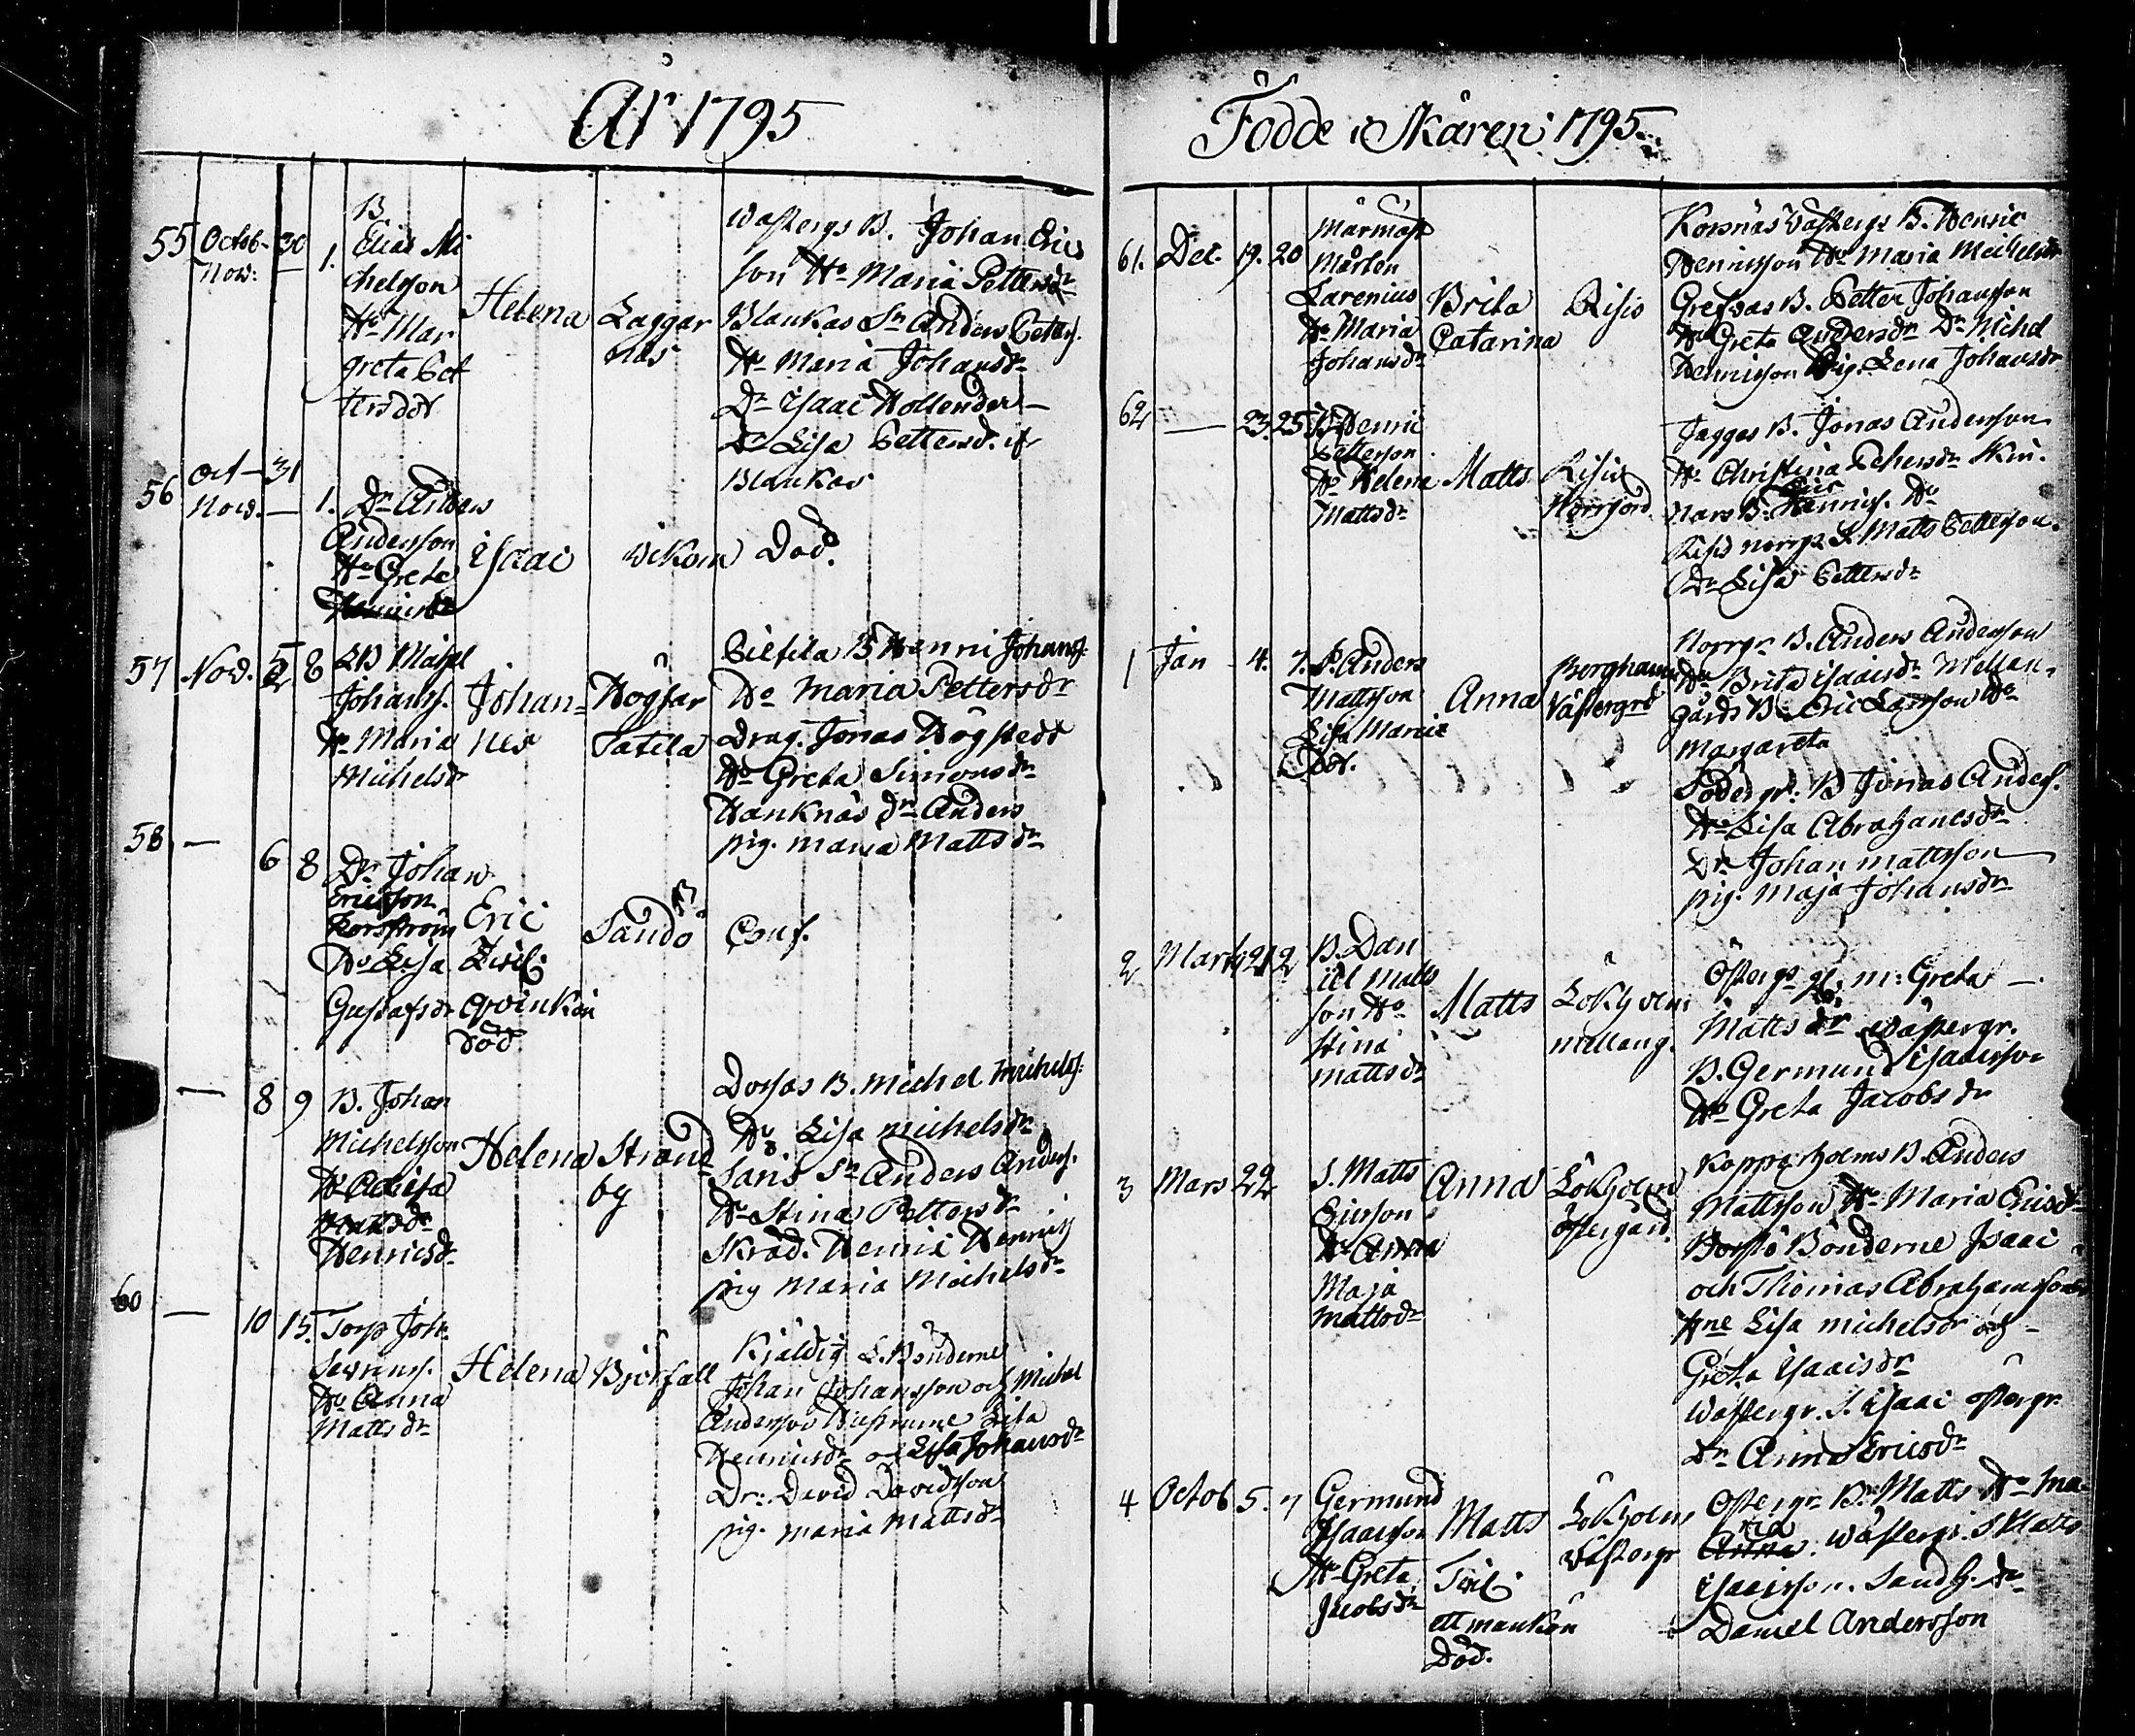 År 1795
55 Octob. 30
Nov. 1.
B.
Elias Mi
chelsson
Ho Mar
greta Pet
tersdot
Helena
Laggar
näs
Wästergs B. Johan Erics
son Ho Maria Pettersdr
Blankas Sn Anders Petters.
Ho Maria Johansdr
Dr Isaac Hollender
Lisa Pettersd. if
Blankas
56 Oct 31
Nov. 1.
Dr Anders
Andersson
Ho Greta
Henricsdr
Isaac
Vikom
Död.
57 Nov. 5 8
Majel
Johanss.
Ho Maria
Michelsdr
Johan=
nes
Högsar
Satela
B Henric Johanss.
Ho Maria Pettersdr
Drag. Jonas Högstedt
Ho Greta Simonsdr
Hanknäs Dr Anders
pig. Maria Mattsdr
58 — 6 8
Dr Johan
Ericsson
Korsström
Ho Lisa
Gustafsdr
Eric
Tvil.
qvinkön
död
Sandö
— 8 9
B. Johan
Michelsson
Ho
Mattsdr
Henricsdr
Helena
Strand
by
B. Michel Michelss.
Ho Lisa Michelsdr
Sn Anders Anderss.
Ho Stina Pettersdr
Skräd. Henric Henricss
pig Maria Michelsdr
60 — 10 15.
Torp Joh.
Ho Anna
Mattsdr
Helena
Björsall
Kjäldig L. Bönderne
Johan Johansson och Michel
Andersson Hustrurne Lisa
Henricsdr och Lisa Johansdr
Dr: David Davidsson
pig. Maria Mattsdr
Födde i Skären 1795
61. Dec. 19. 20
Mårten
Larenius
Ho Maria
Johansdr
Brita
Catarina
Risis
Korsnäs Wästergs B. Henric
Henricsson Ho Maria Michelsdr
Grefsas B. Petter Johansson
Ho Greta Andersdr Dr Michel
Henricsson Pig. Lena Johansdr
62 — 23. 25
B Henric
Pettersson
Ho Helena
Mattsdr
Matts
Risis
Norrgård
Jagges B. Jonas Andersson
Ho Christina Pehrsdr Skin.
nars B. Henricss. Ho
Risis norrgs S. Matts Pettersson.
Dr Lisa Pettersdr
1 Jan 4. 7.
S. Anders
Mattsson
Lisa Maria
Dot.
Anna
Borghamn
Västergrd
Norrgr B. Anders Andersson
Ho Brita Isaacsdr Mellan-
gårds B Eric Larsson Ho
Margareta
Södergr: B Jonas Anderss.
Ho Lisa Abrahamsdr
Dr Johan Mattsson
pig. Maja Johansdr
2 Marti 21 2
B. Dan
iel Matts
son Ho
Stina
Mattsdr
Matts
Lökholm
mellang.
Östergs gl. m: Greta —
Mattsdr wästergr.
B. Germund Isaacsson
Ho Greta Jacobsdr
3 Mars 22
S. Matts
Ericsson
Ho Anna
Maja
Mattsdr
Anna
Lökholm
östergård.
Kopparholms B. Anders
Mattsson Ho Maria Ericsdr
Borstö Bönderne Isaac
och Thomas Abrahamssöner
Hne Lisa Michelsdr och
Greta Isaacsdr
Wästergr. S. Isaac östergr.
Dr Anna Ericsdr
4 Octob 5. 7
Germund
Isaacsson
Ho Greta
Jacobsdr
Matts
Tvil.
ett mankön
Död.
Lökholms
västergr
Östergr B. Matts Ho Ma-
ria
Anna. Wästergr. S Matts
Isaacsson. Sandh. Dr
Daniel Andersson